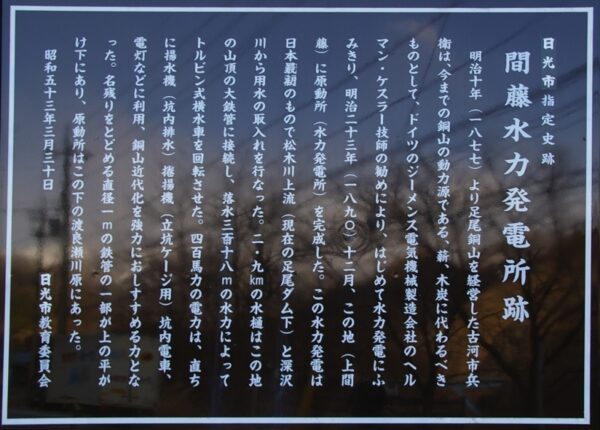 日光市指定史跡
間藤水力発電所跡
明治十年(一八七七)より足尾銅山を経営した古河市兵
衛は、今までの銅山の動力源である、薪、木炭に代わるべき
ものとして、ドイツのジーメンズ電気機械製造会社のヘル
マン・ケスラー技師の勧めにより、はじめて水力発電にふ
みきり、明治二十三年(一八九〇)十二月、この地(上間
藤)に原動所(水力発電所)を完成した。この水力発電は
日本最初のもので松木川上流(現在の足尾ダム下)と深沢
川から用水の取入れを行なった。二・九kmの水樋はこの地
の山頂の大鉄管に接続し、落水三百十八mの水力によって
トルビン式横水車を回転させた。四百馬力の電力は、直ち
に揚水機(坑内排水)捲揚機(立坑ケージ用)坑内電車、
電灯などに利用、銅山近代化を強力におしすすめる力とな
った。名残りをとどめる直径一mの鉄管の一部が上の平が
け下にあり、原動所はこの下の渡良瀬川原にあった。
昭和五十三年三月三十日
日光市教育委員会